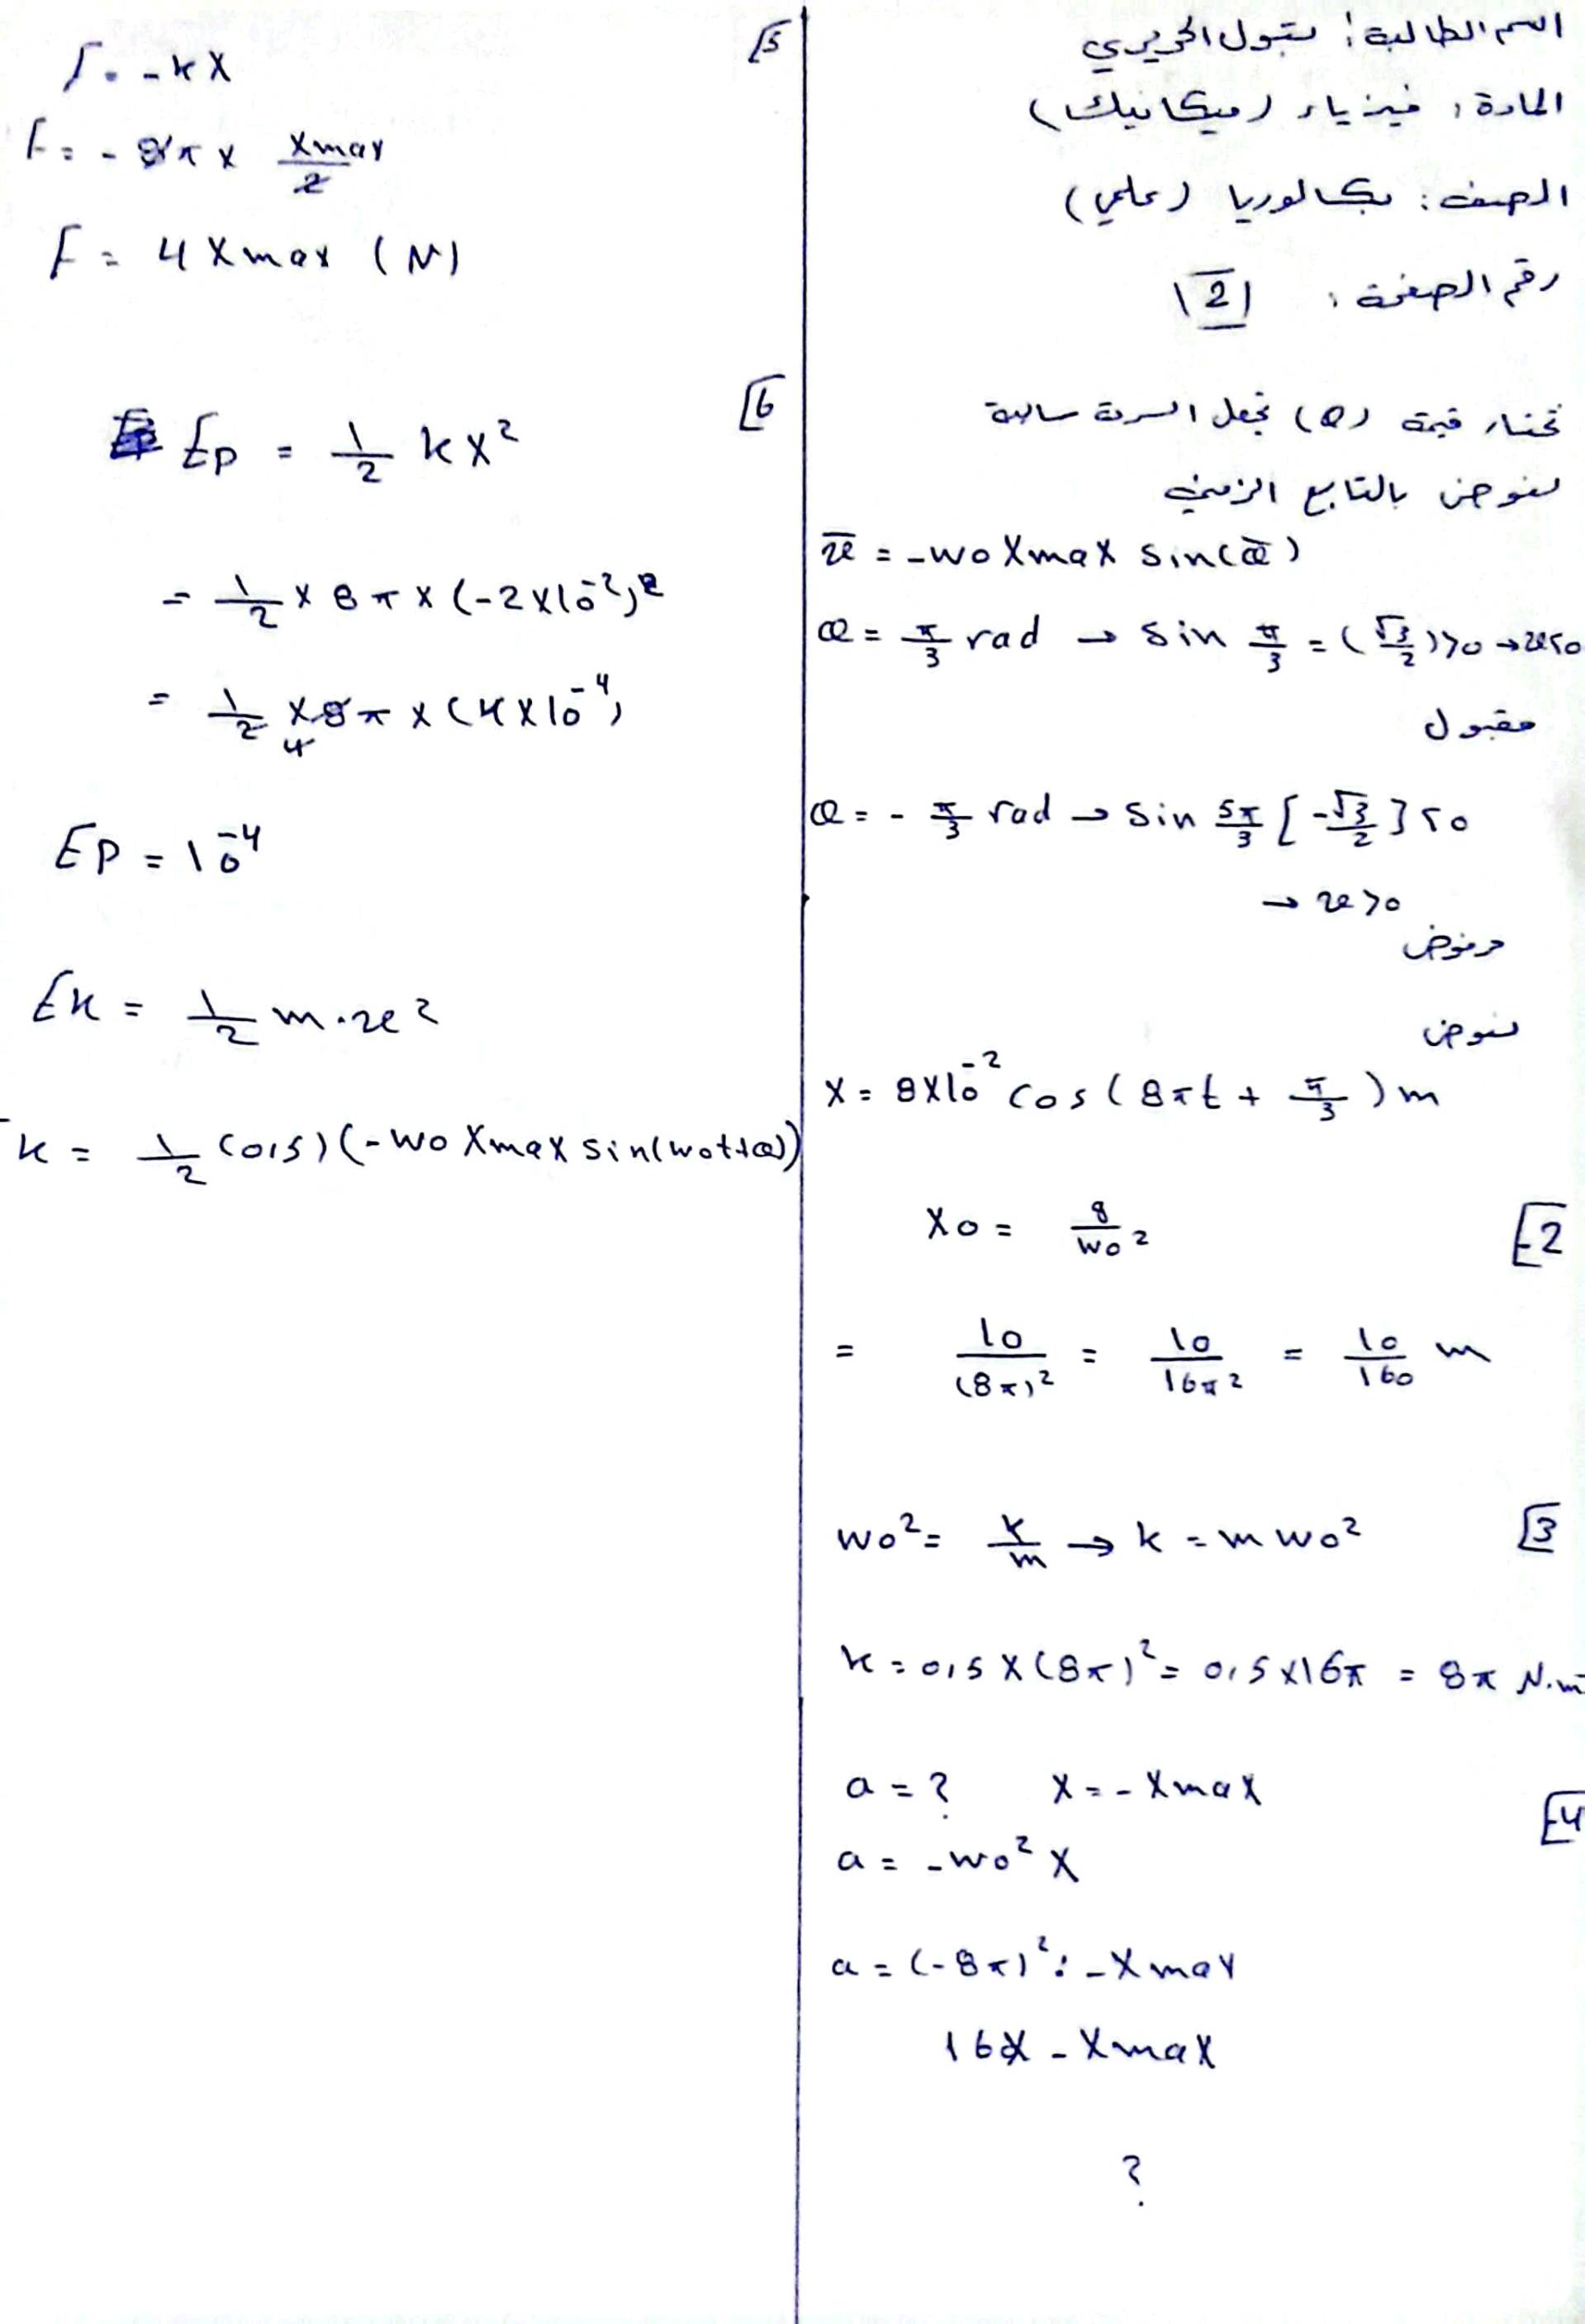 اسم الطالبة: بتول الحريري
المادة: فيزياء (ميكانيك)
الصف: بكالوريا (علمي)
رقم الصفحة: 2
نختار قيمة (φ) تجعل السرعة سالبة
نعوض بالتابع الزمني
v̅ = -w0 Xmax sin(φ̅)
φ = π/3 rad → sin π/3 = (√3/2)>0 → v<0
مقبول
φ = - π/3 rad → sin 5π/3 [-√3/2] <0
→ v>0
مرفوض
نعوض
X = 8X10^-2 cos(8πt + π/3) m
2
X0 = g/w0^2
= 10/(8π)^2 = 10/16π^2 = 10/160 m
3
w0^2 = k/m → k = m w0^2
k = 0,5 X (8π)^2 = 0,5 X16π = 8π N.m
4
a = ? X = - Xmax
a = -w0^2 X
a = (-8π)^2 : -Xmax
16X - Xmax
?
5
F = -kX
F = - 8π X Xmax/2
F = 4 Xmax (N)
6
Ep = 1/2 kX^2
= 1/2 X 8π X (-2X10^-2)^2
= 1/2 X 8π X (4X10^-4)
4
EP = 10^-4
Ek = 1/2 m.v^2
k = 1/2 (0,5) (-w0 Xmax sin(w0t+φ))